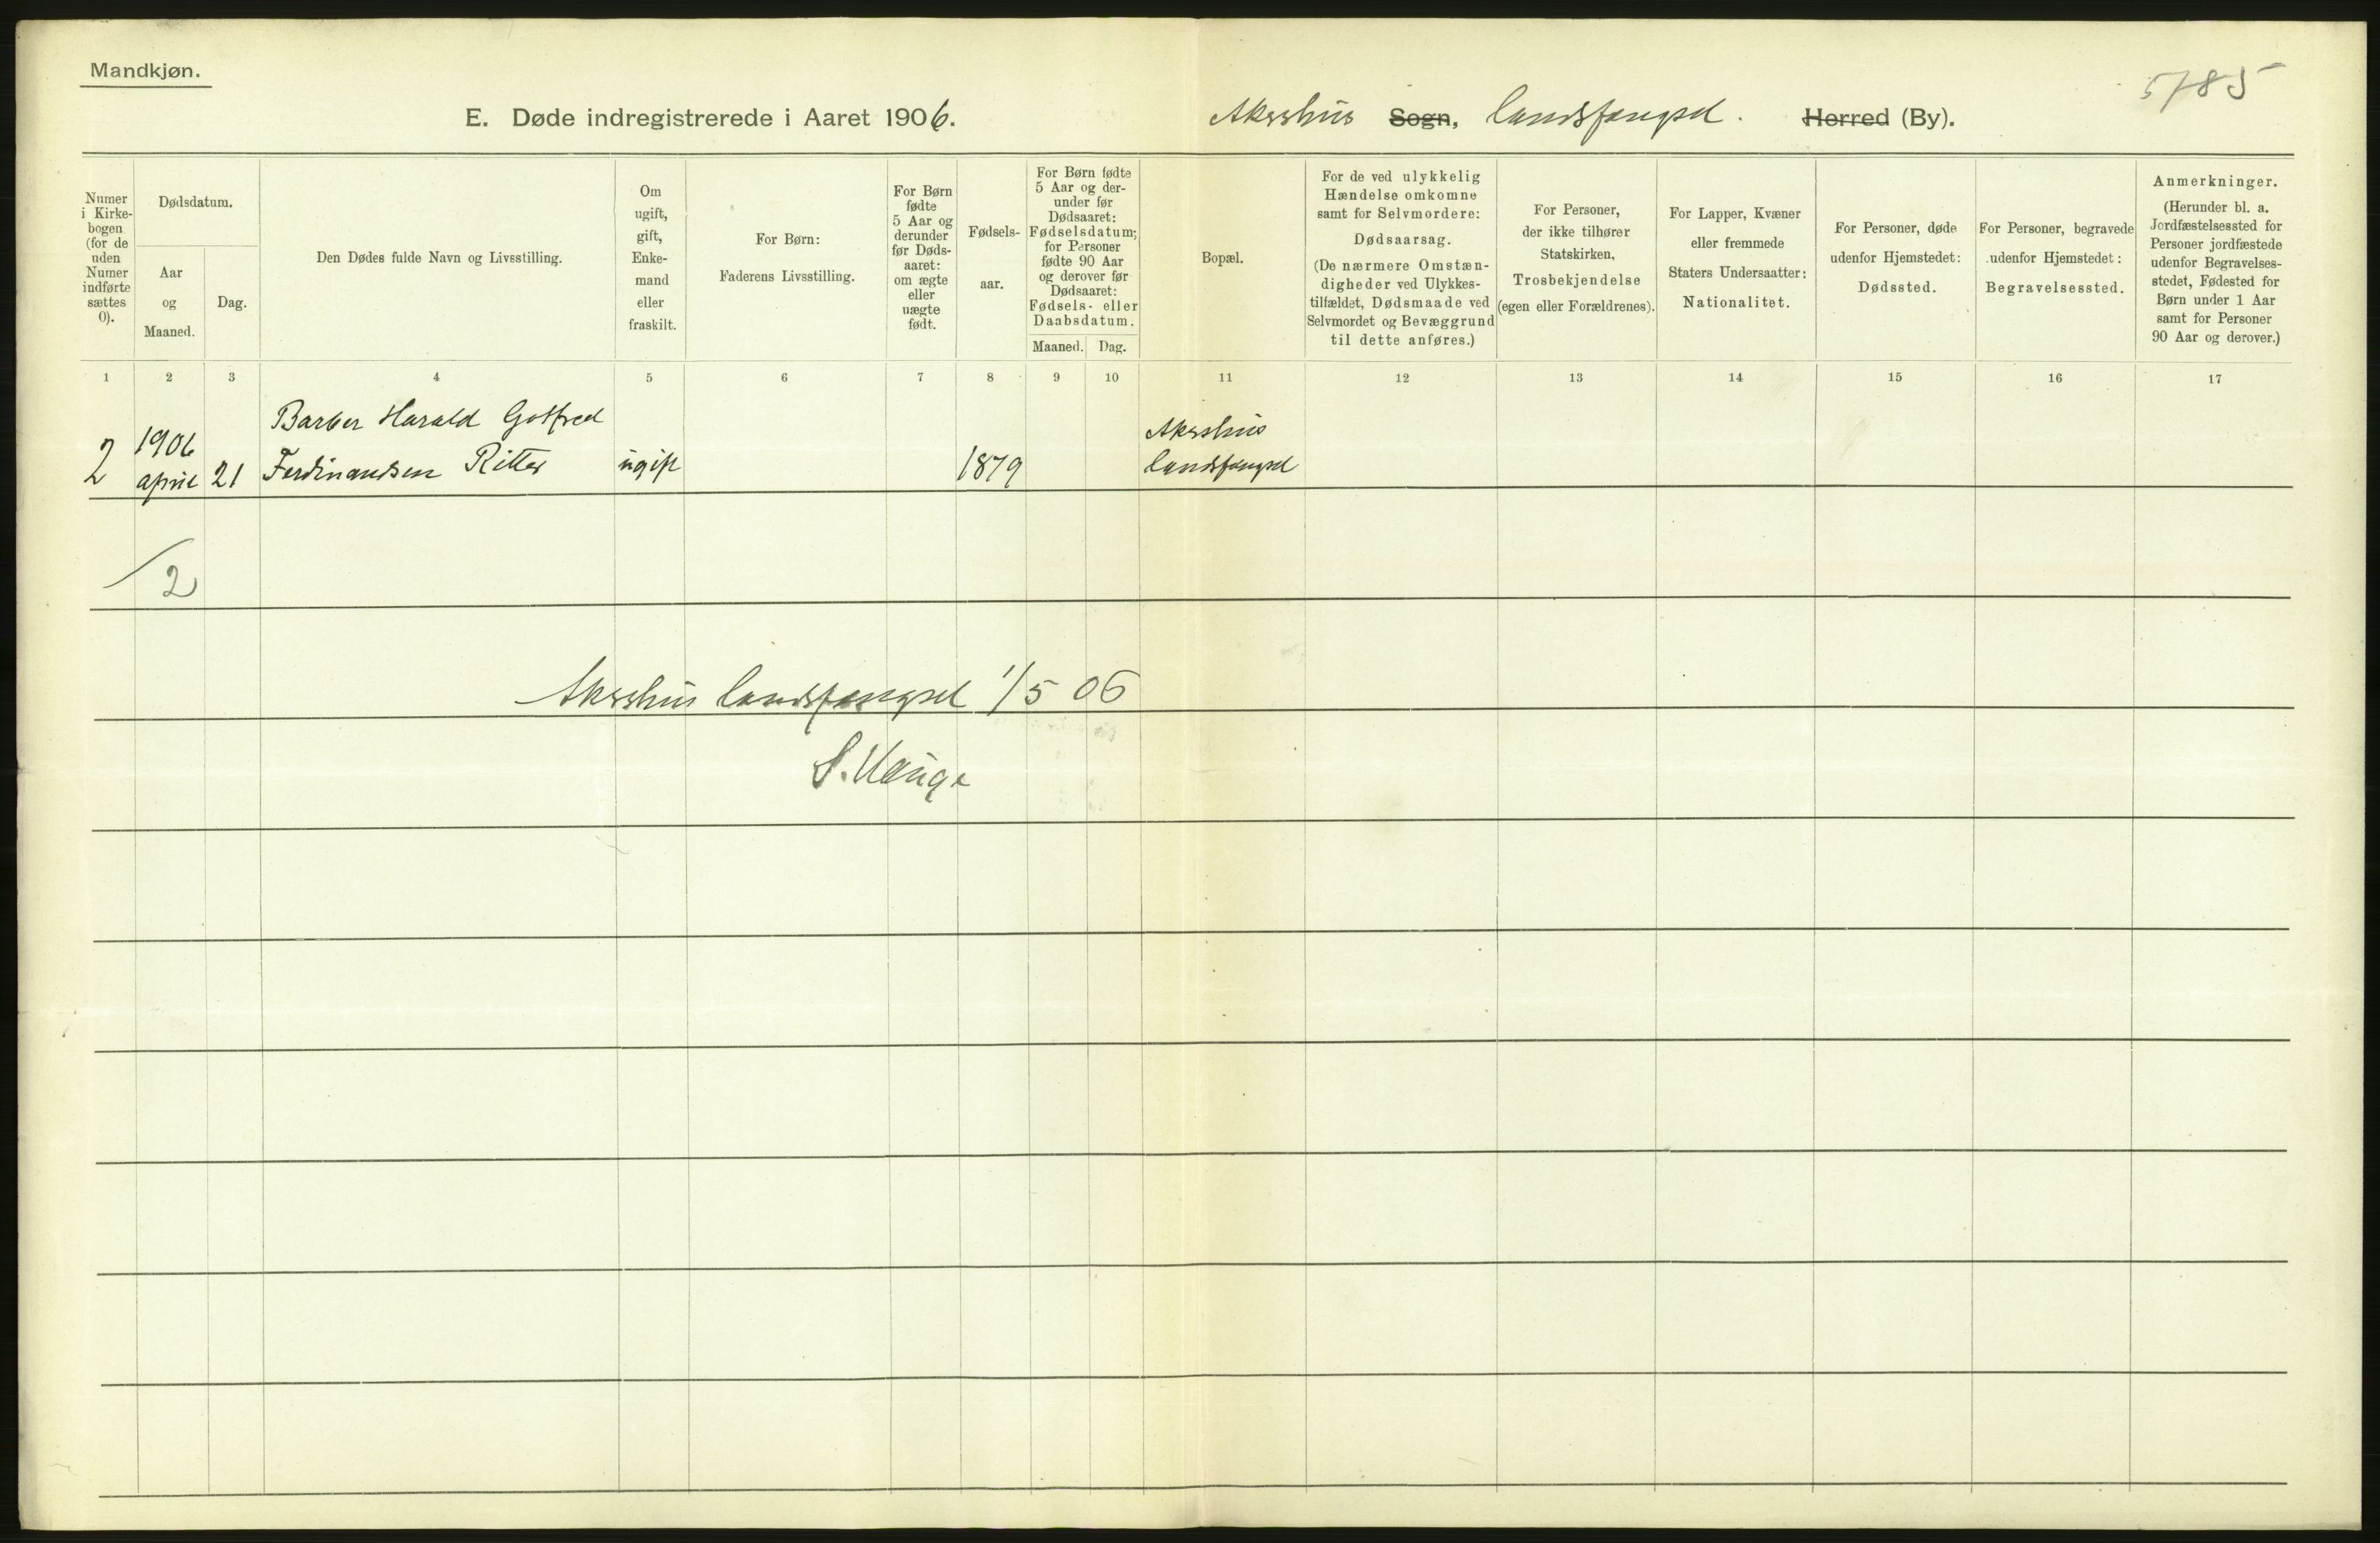 Mandkjøn.
5785
E. Døde indregistrerede i Aaret 1906.
Akershus Sogn, landsfængsel. Herred (By).
Numer
i Kirke-
bogen
(for de
uden
Numer
indførte
sættes
0).
Dødsdatum.
Aar
og
Maaned.
Dag.
Den Dødes fulde Navn og Livsstilling.
Om
ugift,
gift,
Enke-
mand
eller
fraskilt.
For Børn:
Faderens Livsstilling.
For Børn
fødte
5 Aar og
derunder
før Døds-
aaret:
om ægte
eller
uægte
født.
Fødsels-
aar.
For Børn fødte
5 Aar og der-
under før
Dødsaaret:
Fødselsdatum;
for Personer
fødte 90 Aar
og derover før
Dødsaaret:
Fødsels- eller
Daabsdatum.
Maaned. Dag.
Bopæl.
For de ved ulykkelig
Hændelse omkomne
samt for Selvmordere:
Dødsaarsag.
(De nærmere Omstæn-
digheder ved Ulykkes-
tilfældet, Dødsmaade ved
Selvmordet og Bevæggrund
til dette anføres.)
For Personer,
der ikke tilhører
Statskirken,
Trosbekjendelse
(egen eller Forældrenes).
For Lapper, Kvæner
eller fremmede
Staters Undersaatter:
Nationalitet.
For Personer, døde
udenfor Hjemstedet:
Dødssted.
For Personer, begravede
udenfor Hjemstedet:
Begravelsessted.
Anmerkninger.
(Herunder bl. a.
Jordfæstelsessted for
Personer jordfæstede
udenfor Begravelses-
stedet, Fødested for
Børn under 1 Aar
samt for Personer
90 Aar og derover.)
1 2 3 4 5 6 7 8 9 10 11 12 13 14 15 16 17
Barber Harald Gotfred
Akershus
1906
2 april 21 Ferdinandsen Ritter ugift 1879 landsfængsel
2
Akershus landsfængsel 1/5 06
S. Hauge